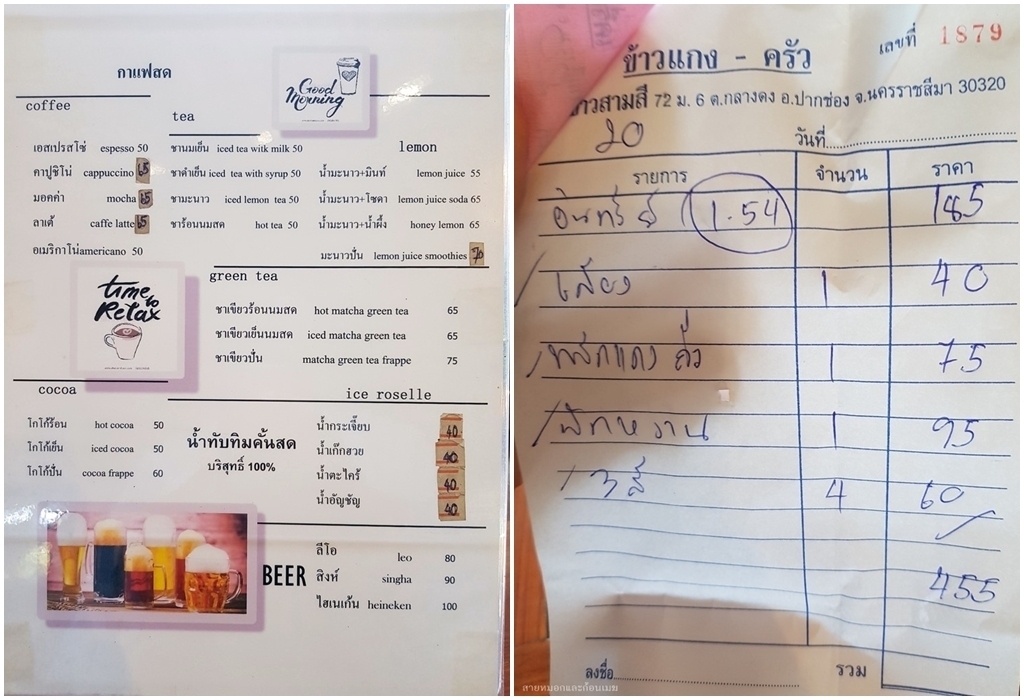 กาแฟสด
Good
Morning
coffee
เอสเปรสโซ่ espesso 50
คาปูชิโน่ cappuccino 65
มอคค่า mocha 65
ลาเต้ caffe latte 65
อเมริกาโน่ americano 50
tea
ชานมเย็น iced tea witk milk 50
ชาดำเย็น iced tea with syrup 50
ชามะนาว iced lemon tea 50
ชาร้อนนมสด hot tea 50
lemon
น้ำมะนาว+มินท์ lemon juice 55
น้ำมะนาว+โซดา lemon juice soda 65
น้ำมะนาว+น้ำผึ้ง honey lemon 65
มะนาวปั่น lemon juice smoothies 70
time
to
Relax
green tea
ชาเขียวร้อนนมสด hot matcha green tea 65
ชาเขียวเย็นนมสด iced matcha green tea 65
ชาเขียวปั่น matcha green tea frappe 75
cocoa
โกโก้ร้อน hot cocoa 50
โกโก้เย็น iced cocoa 50
โกโก้ปั่น cocoa frappe 60
น้ำทับทิมคั้นสด
บริสุทธิ์ 100%
ice roselle
น้ำกระเจี๊ยบ 40
น้ำเก๊กฮวย 40
น้ำตะไคร้ 40
น้ำอัญชัญ 40
BEER
ลีโอ leo 80
สิงห์ singha 90
ไฮเนเก้น heineken 100
ข้าวแกง - ครัว
เลขที่ 1879
สามสี 72 ม. 6 ต.กลางดง อ.ปากช่อง จ.นครราชสีมา 30320
20 วันที่
รายการ จำนวน ราคา
1.54 185
1 40
1 75
ผัดหวาน 1 95
4 60
455
ลงชื่อ รวม
สายหมอกและก้อนเมฆ